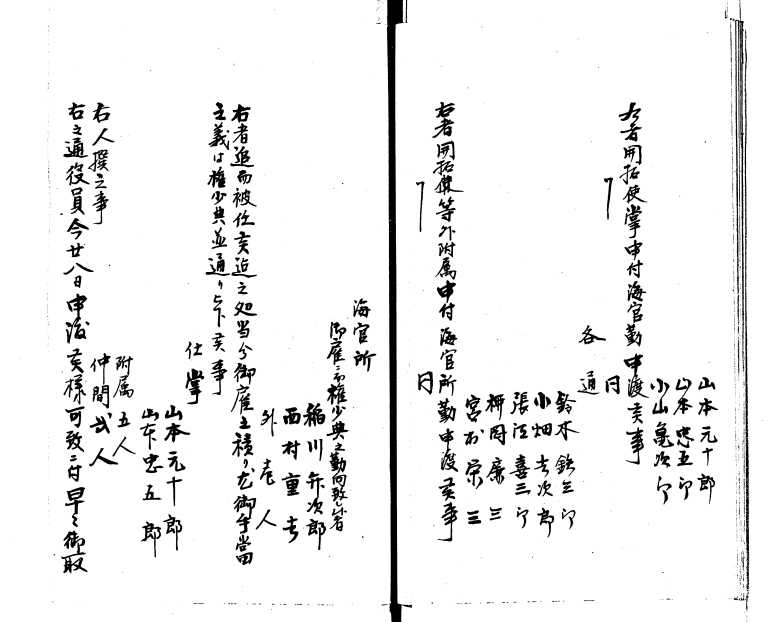 山本元十郎
山本忠五郎
小山亀次郎
右者開拓使掌申付海官勤申渡候事
同
各通
鈴木鉄三郎
小畑吉次郎
張江喜三郎
柳岡廉三
宮本栄三
右者開拓使等外附属申付海官所勤申渡候事
同
海官所
御雇ニ而権少典之勤向致候者
稲川弁次郎
西村重吉
外壱人
右者追而被任候迄之処当分御雇之積り尤御手当
之義は権少典並通り被下候事
仕掌
山本元十郎
山本忠五郎
附属五人
仲間弐人
右人撰之事
右之通役員今廿八日申渡候様可致ニ付早々御取